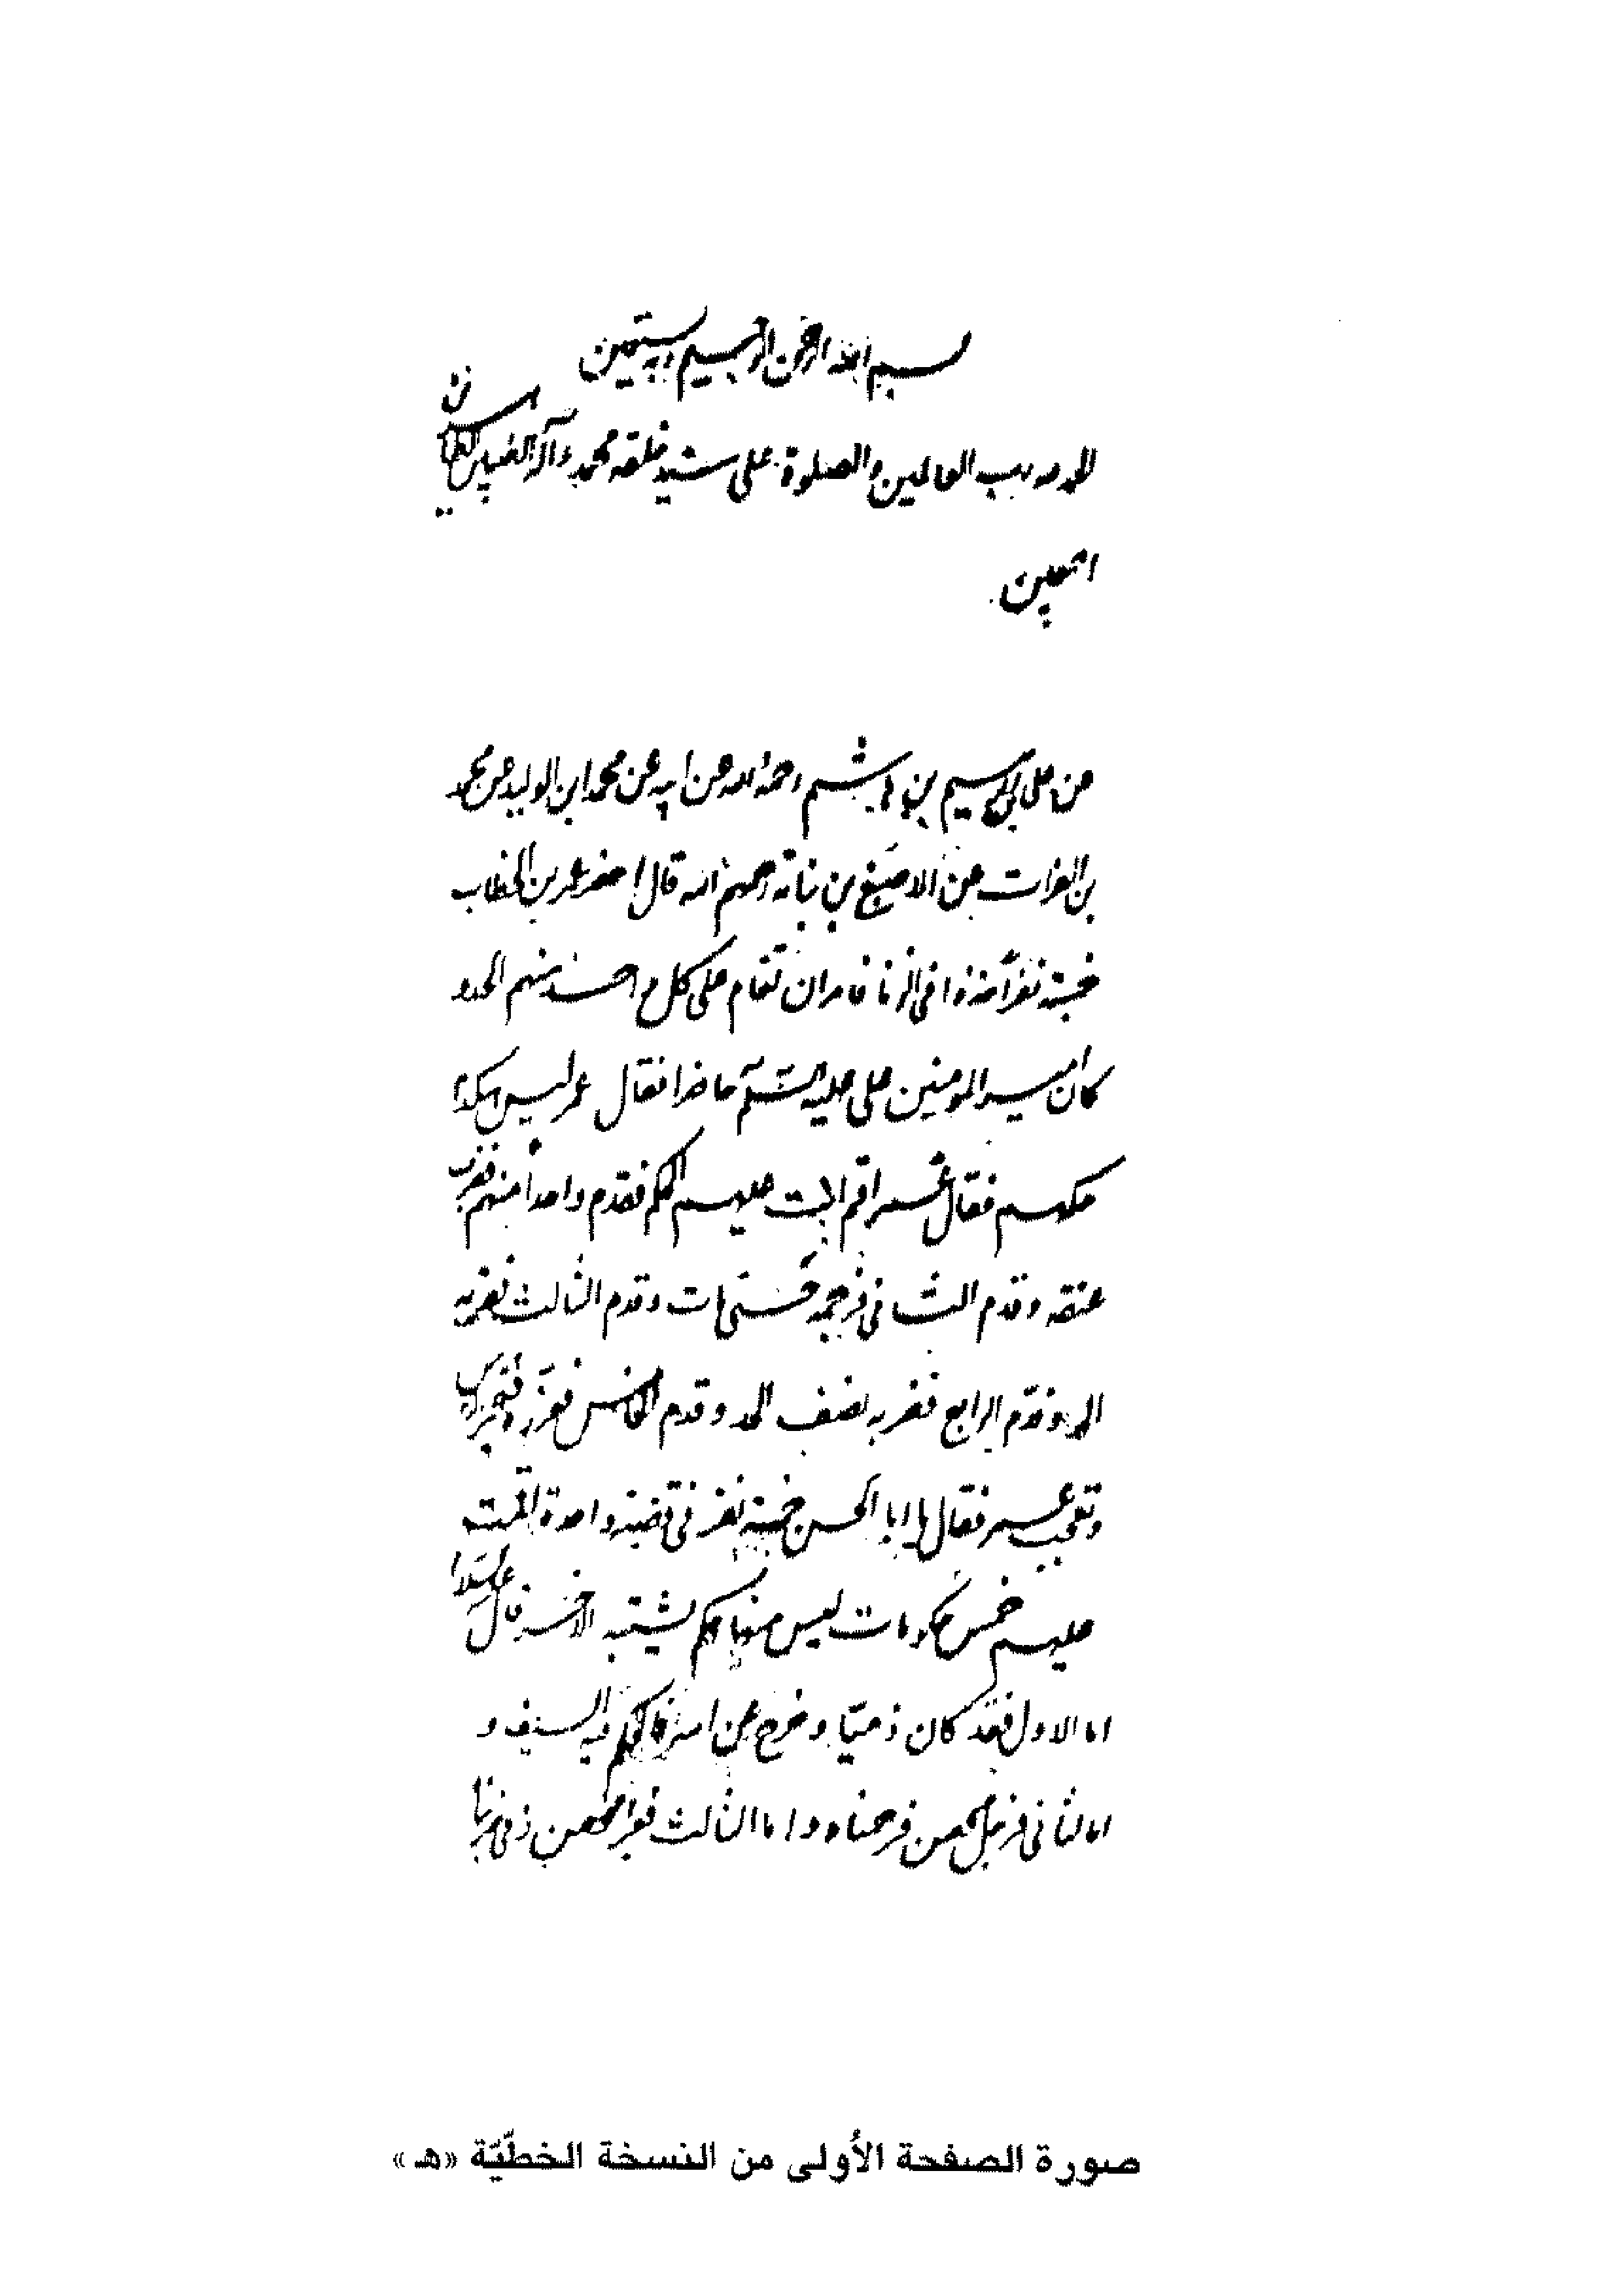 بسم الله الرحمن الرحيم وبه نستعين
الحمد لله رب العالمين والصلوة على سيد خلقه محمد وآله الطيبين الطاهرين
اجمعين
عن علي بن ابراهيم بن هاشم رحمه الله عن ابيه عن محمد ابن الوليد عن محمد
بن الفرات عن الاصبغ بن نباتة رحمهم الله قال احضر عمر بن الخطاب
خمسة نفر أخذوا في الزنا فامر ان تقام على كل واحد منهم الحد و
كان امير المومنين علي عليه السلام حاضرا فقال يا عمر ليس هكذا
حكمهم فقال عمر اقم انت عليهم الحكم فقدم واحداً منهم فضرب
عنقه وقدم الثاني فرجمه حتى مات وقدم الثالث فضربه
الحد وقدّم الرابع فضربه نصف الحد وقدم الخامس فعزره فتحير الناس
وتعجب عمر فقال يا ابا الحسن خمسة نفر في قضية واحدة اقمت
عليهم خمس حكومات ليس منها حكم يشبه الاخر فقال عليه السلام
اما الاول فقد كان ذميّا وخرج عن ذمته فالحكم فيه السيف و
اما الثاني فرجل محصن فرجمناه واما الثالث فغير محصن زنى فضربناه
صورة الصفحة الأولى من النسخة الخطّيّة «هـ»